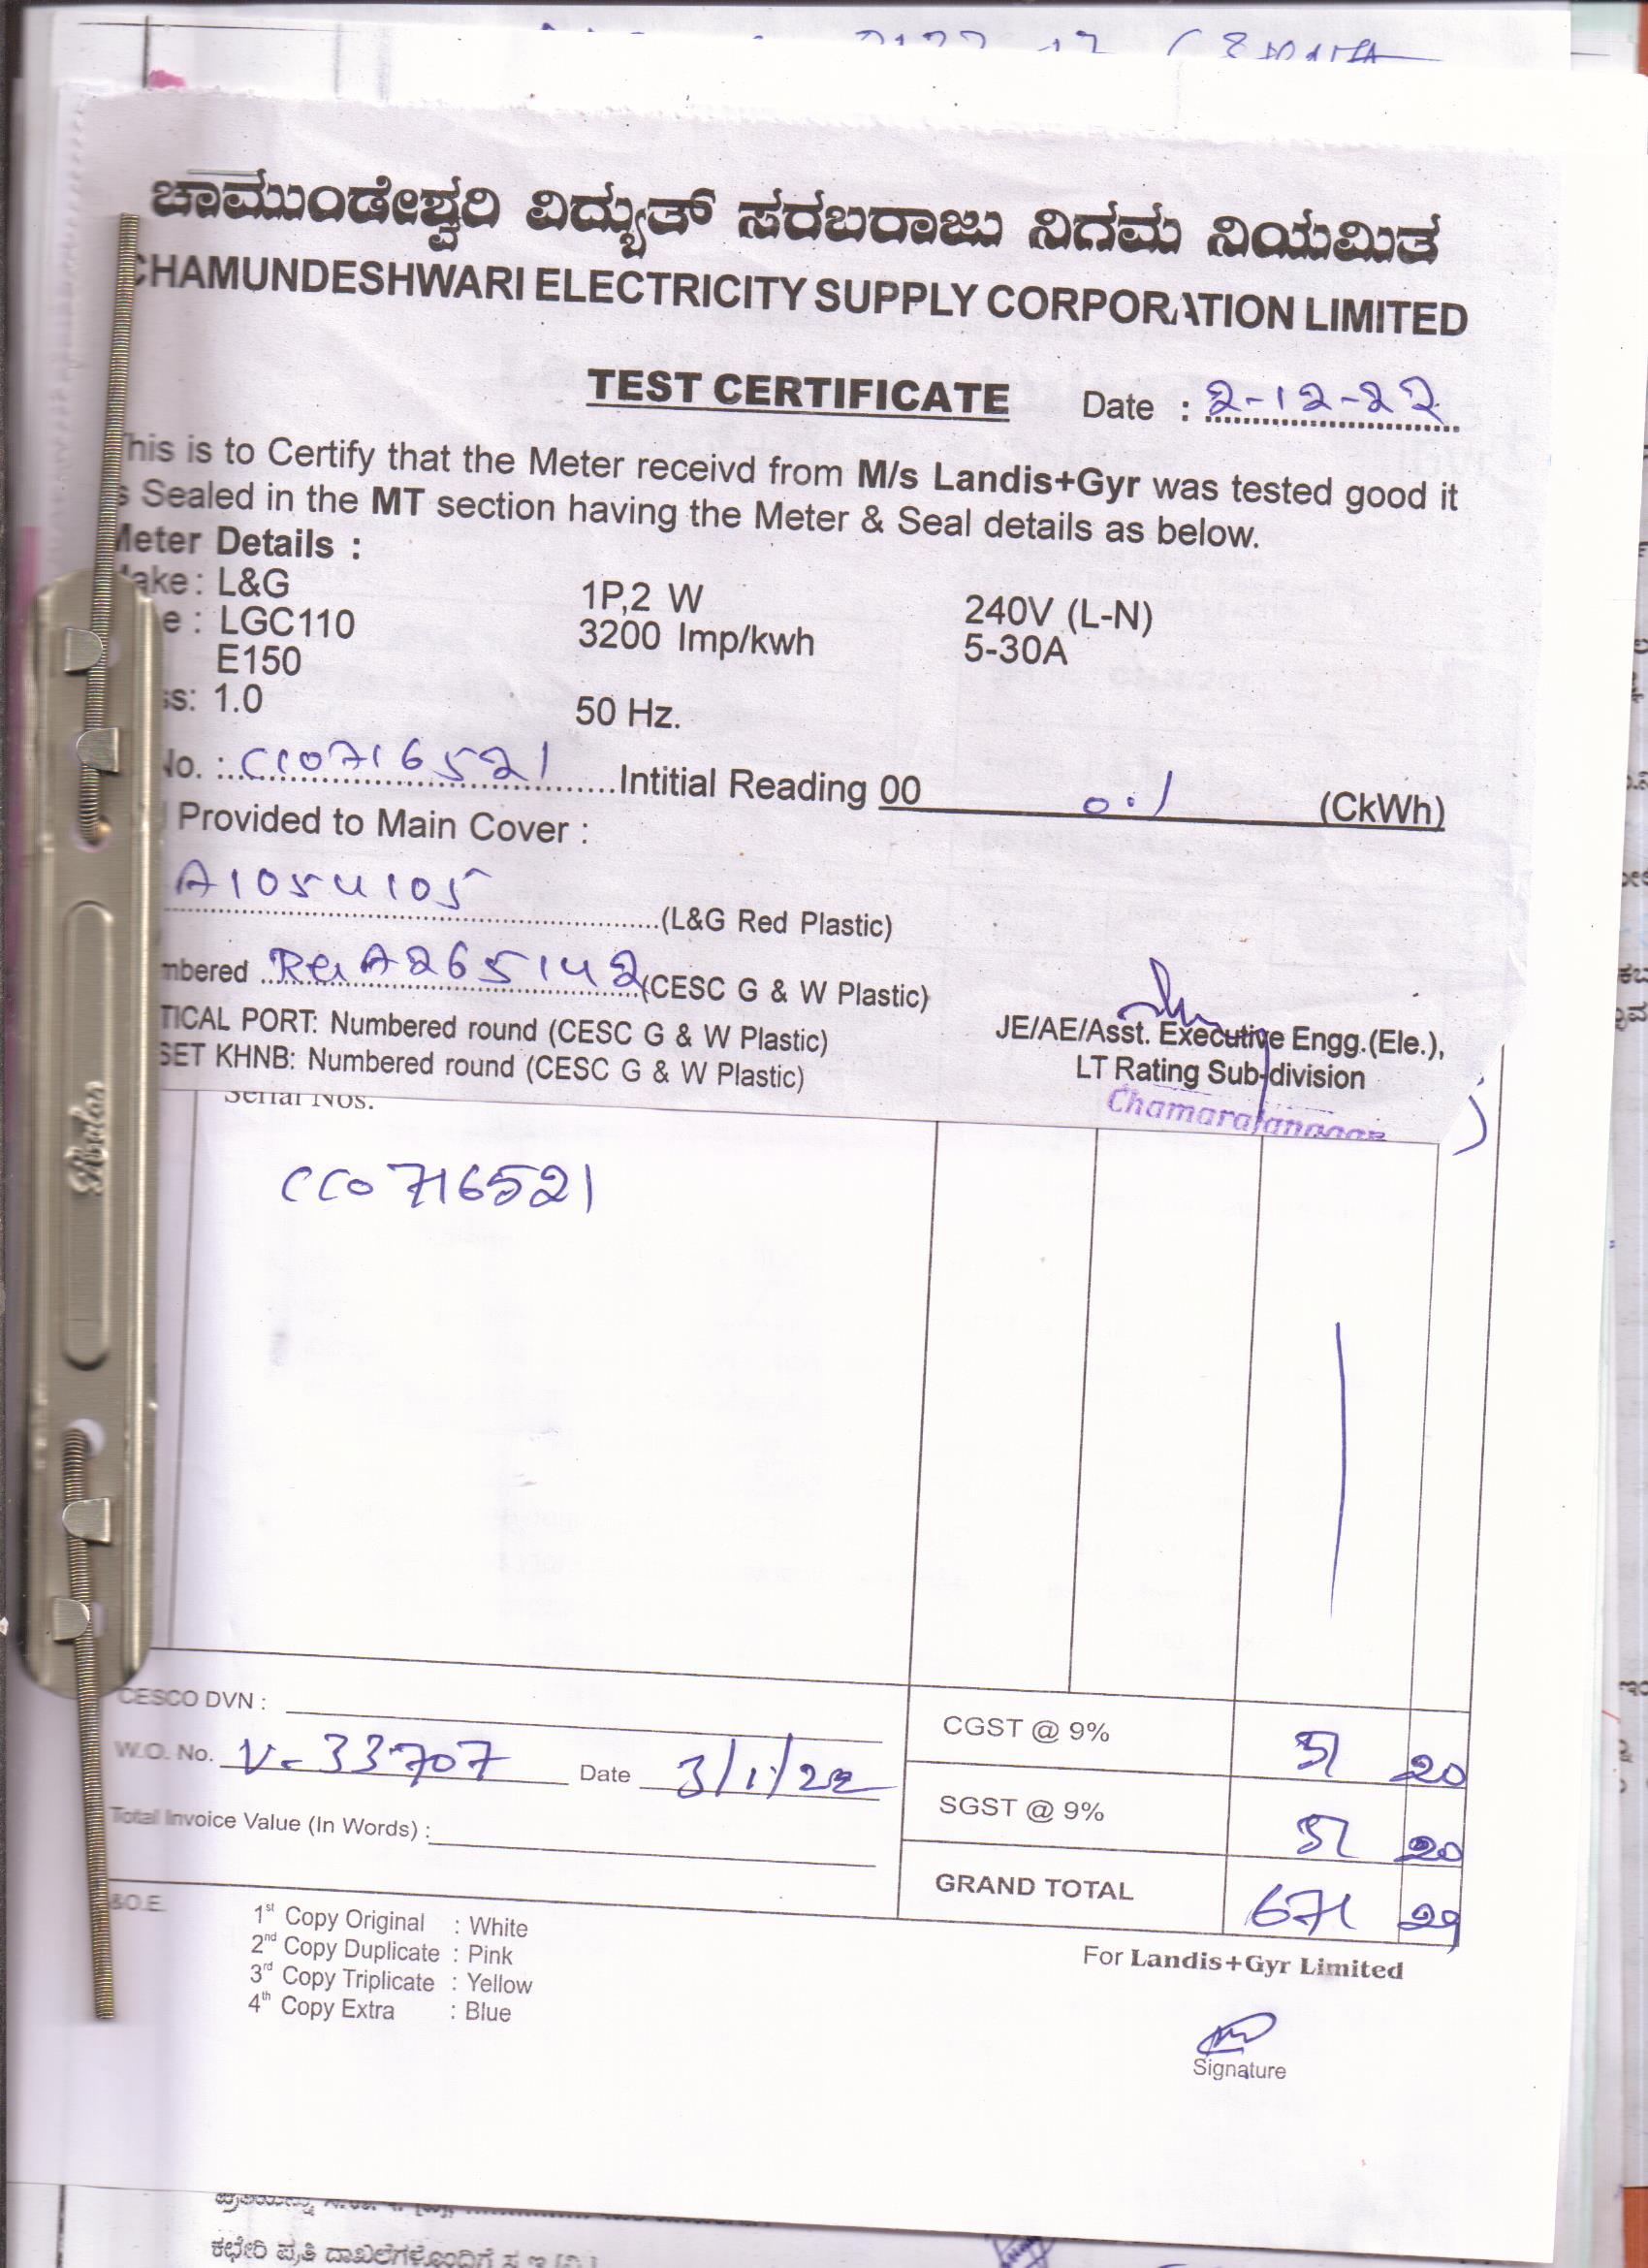 ಚಾಮುಂಡೇಶ್ವರಿ ವಿದ್ಯುತ್ ಸರಬರಾಜು ನಿಗಮ ನಿಯಮಿತ
CHAMUNDESHWARI ELECTRICITY SUPPLY CORPORATION LIMITED
TEST CERTIFICATE Date : 2-12-22
This is to Certify that the Meter receivd from M/s Landis+Gyr was tested good it
s Sealed in the MT section having the Meter & Seal details as below.
Meter Details :
Make : L&G 1P,2 W 240V (L-N)
e : LGC110 3200 Imp/kwh 5-30A
E150
ss: 1.0 50 Hz.
No. : CC0716521 Intitial Reading 00 0.1 (CkWh)
Provided to Main Cover :
A1054105 (L&G Red Plastic)
mbered A265142 (CESC G & W Plastic)
TICAL PORT: Numbered round (CESC G & W Plastic)
SET KHNB: Numbered round (CESC G & W Plastic)
JE/AE/Asst. Executive Engg.(Ele.),
LT Rating Sub-division
Chamarajanagar
Serial Nos.
CC0716521
CESCO DVN :
W.O. No. V-33707 Date 3/1/22
Total Invoice Value (In Words) :
CGST @ 9% 51 20
SGST @ 9% 51 20
GRAND TOTAL 671 29
&O.E.
1st Copy Original : White
2nd Copy Duplicate : Pink
3rd Copy Triplicate : Yellow
4th Copy Extra : Blue
For Landis+Gyr Limited
Signature
ಕಛೇರಿ ಪ್ರತಿ ದಾಖಲೆಗಳೊಂದಿಗೆ